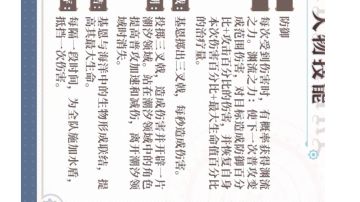 人物技能
防御
每次受到伤害时，有概率获得溯流
之力，溯流之力：使下一次普攻变
成范围伤害，对目标造成防御百分
比+攻击百分比的伤害，并恢复自身
本次伤害百分比+最大生命值百分比
的治疗量。
基恩掷出三叉戟，每秒造成伤害。
基恩掷出三叉戟，造成伤害并开辟一片
潮汐领域。站在潮汐领域中的角色
提高普攻加速和减伤，离开潮汐领
域时消失。
基恩与海洋中的生物形成联结，提
高其最大生命。
每隔一段时间，为全队施加水盾，
抵挡一次伤害。